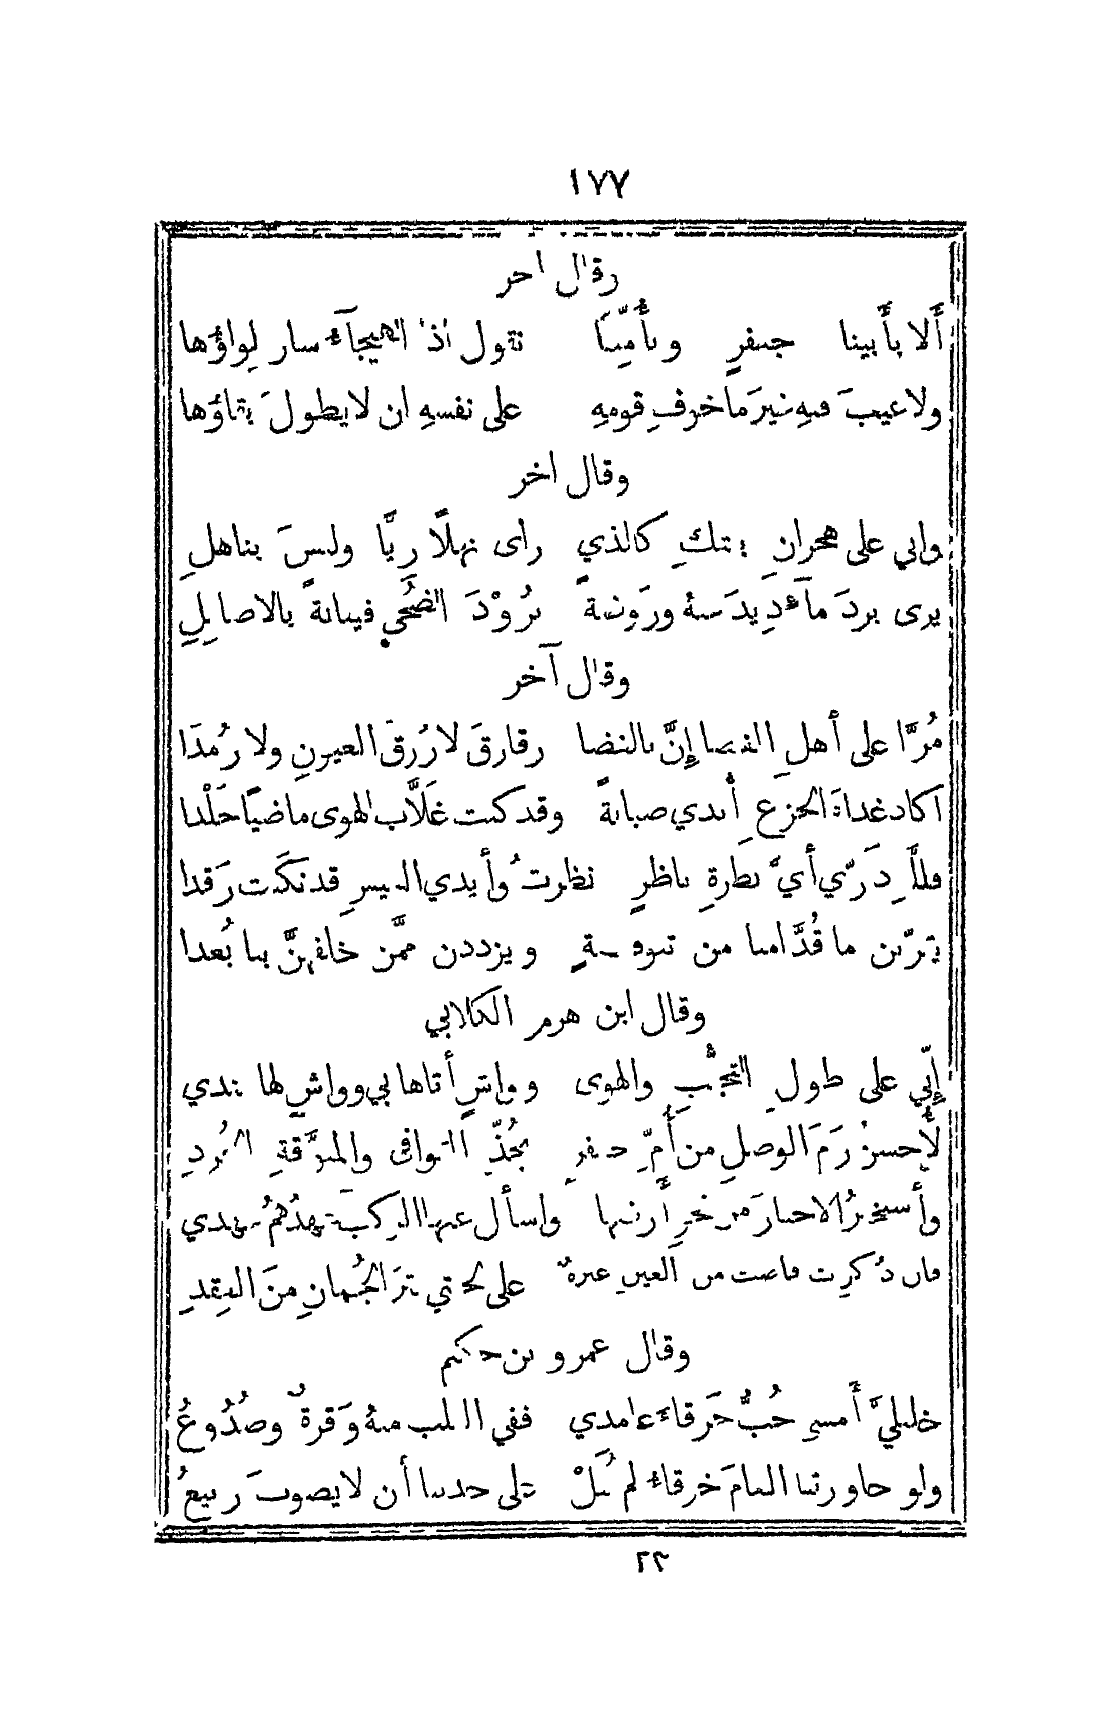 ١٧٧
وقال آخر
أَلا بأَبينا جعفرٍ وبأُمّنا نقول اذا الهيجآء سار لِواؤُها
ولا عيبَ فيهِ غيرَ ما خوفِ قومِهِ على نفسهِ ان لا يطولَ بقاؤها
وقال اخر
واني على هجرانِ بيتكِ كالذي رأى نهلًا رِيًّا وليسَ بناهلِ
يرى بردَ مآء ذِيدَ عنهُ وروضةً بَرُوْدَ الضُحى فينانةً بالاصايلِ
وقال آخر
مُرَّا على أهلِ الغضا إنَّ بالغضا رقارقَ لا زُرقَ العيونِ ولا رُمدَا
اكاد غداةَ الجزعِ أُبدي صبابةً وقد كنت غَلَّاب الهوى ماضيًا جَلْدا
فللّهِ دَرّي أيَّ نظرةِ ناظرٍ نظرتُ وأيدي العيسِ قد نكَّبت رَقدا
يقرّبن ما قُدَّامنا من تنوفةٍ ويزددن ممَّن خلفهنَّ بنا بُعدا
وقال ابن هرم الكلابي
إنّي على طولِ التجنُّبِ والهوى وواشٍ أتاها بي وواشٍ لها عندي
لأُحسنُ رَمَّ الوصلِ من أُمِّ جعفرٍ بحُذِّ القوافي والمنوَّقةِ الجُردِ
وأستخبرُ الاخبارَ من نحوِ أرضها واسأل عنها الركبَ عهدُهمُ عهدي
فان ذُكرت فاضت من العينِ عبرةٌ على لحيتي نثرَ الجُمانِ مِنَ العِقدِ
وقال عمرو بن حكيم
خليليَّ أمسى حُبُّ خَرقاءَ عامدي ففي القلب منهُ وَقرةٌ وصُدُوعُ
ولو جاورتنا العامَ خرقاءُ لم نُبَلْ على جدبنا أن لا يصوبَ ربيعُ
٢٣